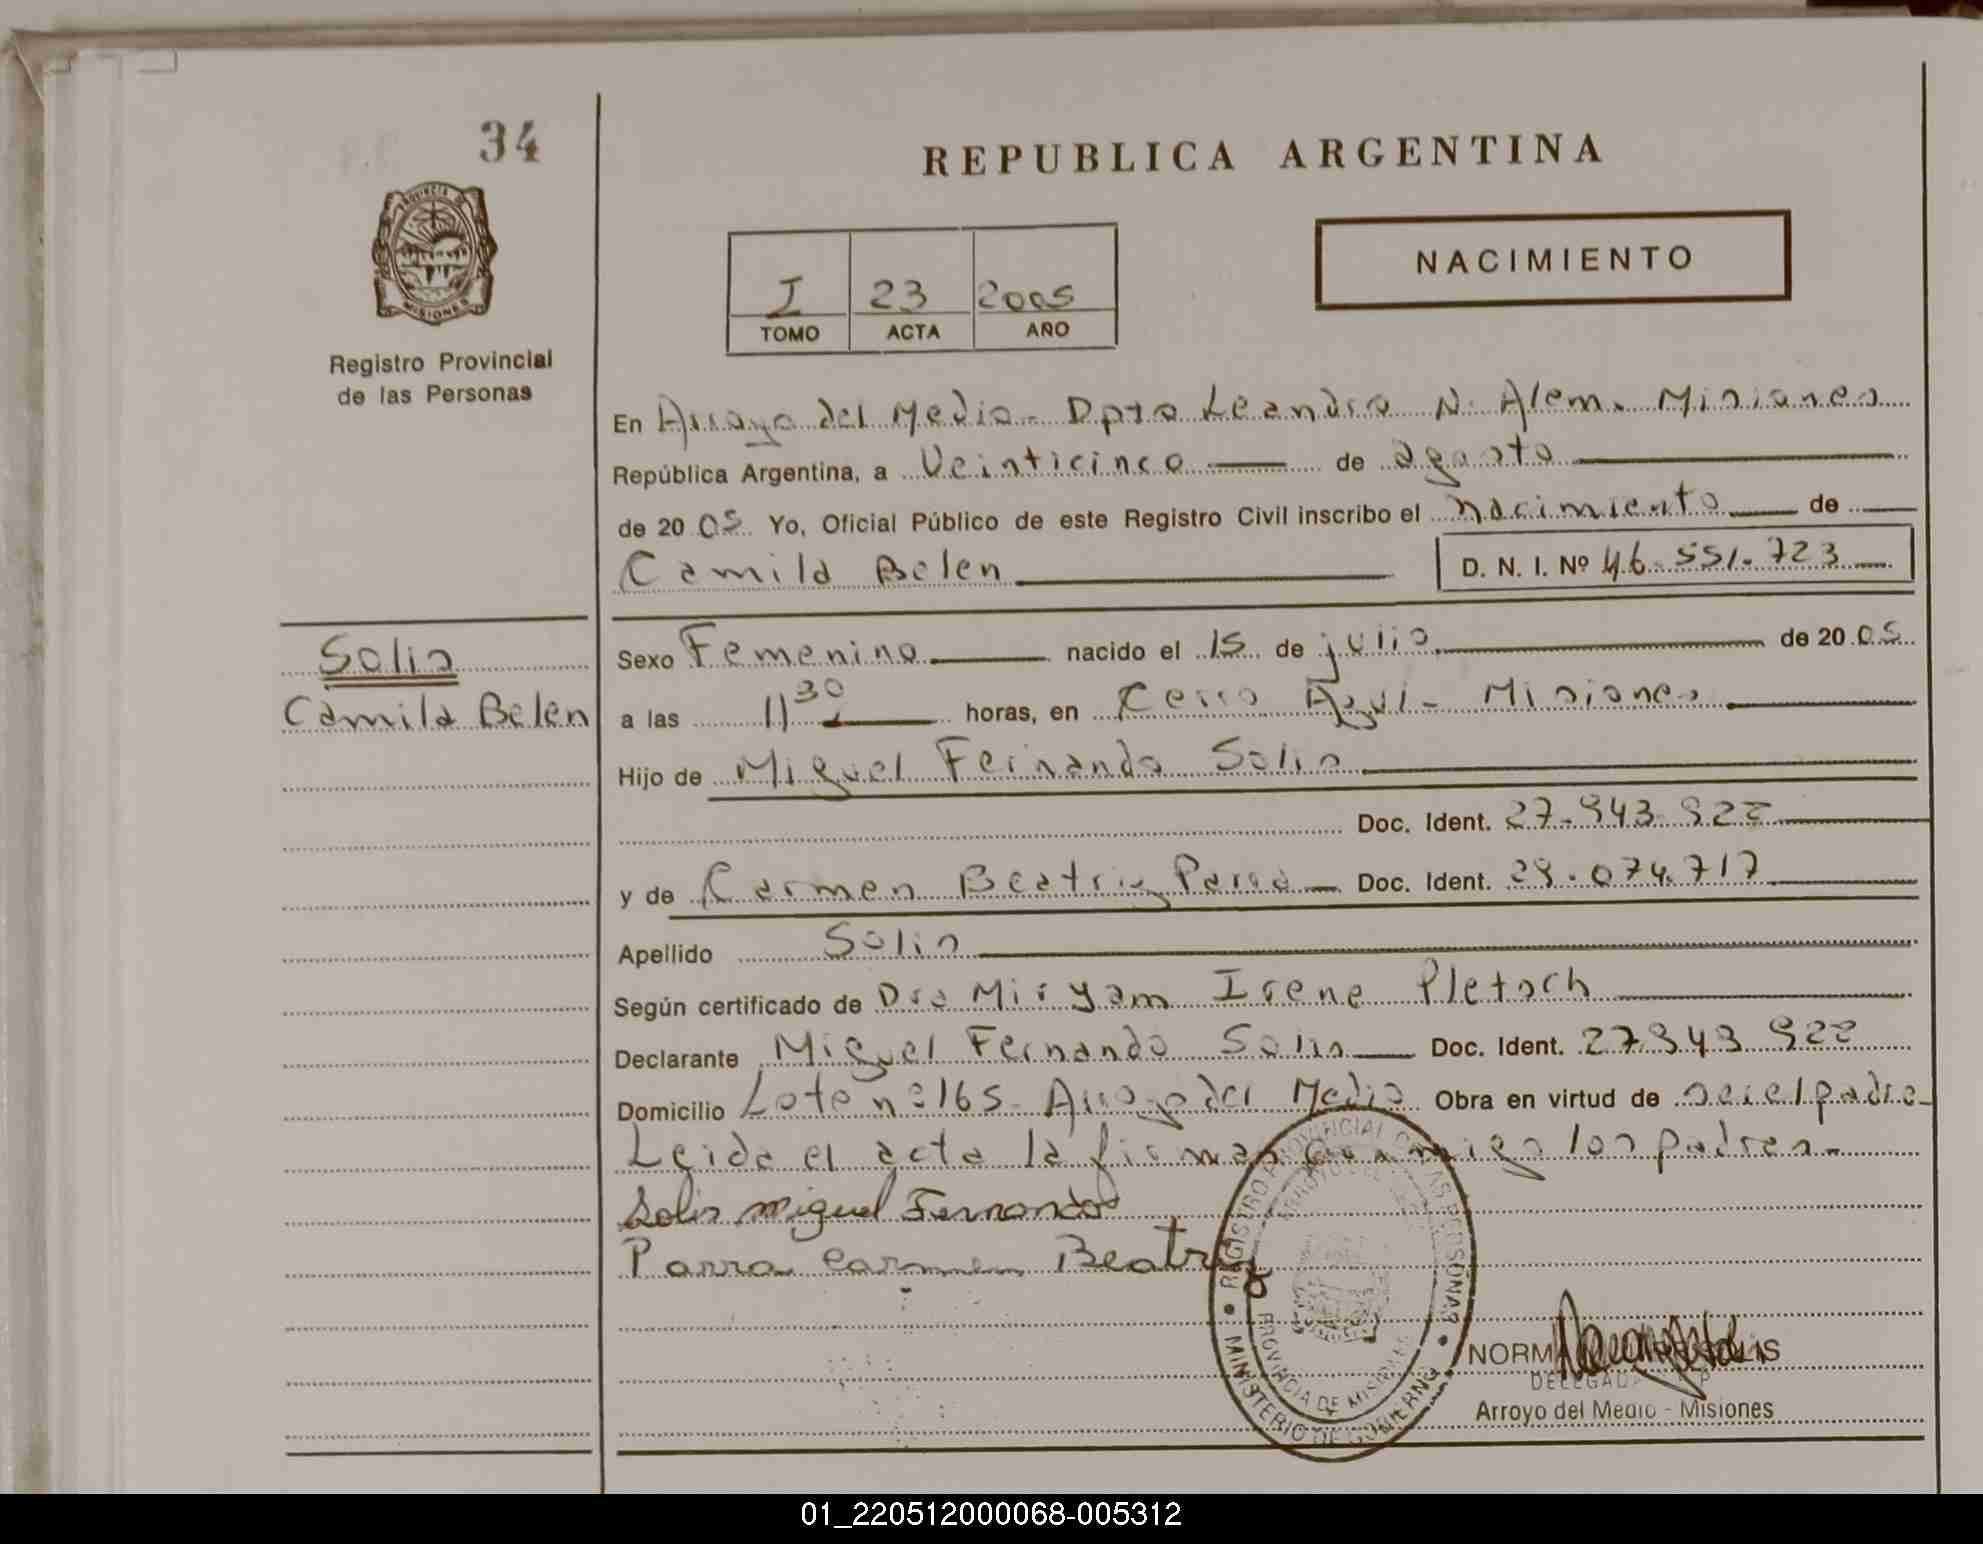 34
PROVINCIA DE
MISIONES
Registro Provincial
de las Personas
REPUBLICA ARGENTINA
NACIMIENTO
I 23 2005
TOMO ACTA AÑO
En Arroyo del Medio - Dpto Leandro N. Alem. Misiones
República Argentina, a Veinticinco de agosto
de 2005. Yo, Oficial Público de este Registro Civil inscribo el nacimiento de
Camila Belen D. N. I. Nº 46.551.723
Solis
Camila Belen
Sexo Femenino nacido el 15 de julio de 2005
a las 11 30 horas, en Cerro Azul - Misiones
Hijo de Miguel Fernando Solis
Doc. Ident. 27.943.922
y de Carmen Beatriz Parra Doc. Ident. 29.074.717
Apellido Solis
Según certificado de Dra Miryam Irene Pletsch
Declarante Miguel Fernando Solis Doc. Ident. 27943922
Domicilio Lote nº 165 - Arroyo del Medio Obra en virtud de ser el padre -
Leida el acta la firman conmigo los padres -
Solis Miguel Fernando
Parra Carmen Beatriz
REGISTRO PROVINCIAL DE LAS PERSONAS
MINISTERIO DE GOBIERNO
PROVINCIA DE MISIONES
Arroyo del Medio - Misiones
01_220512000068-005312